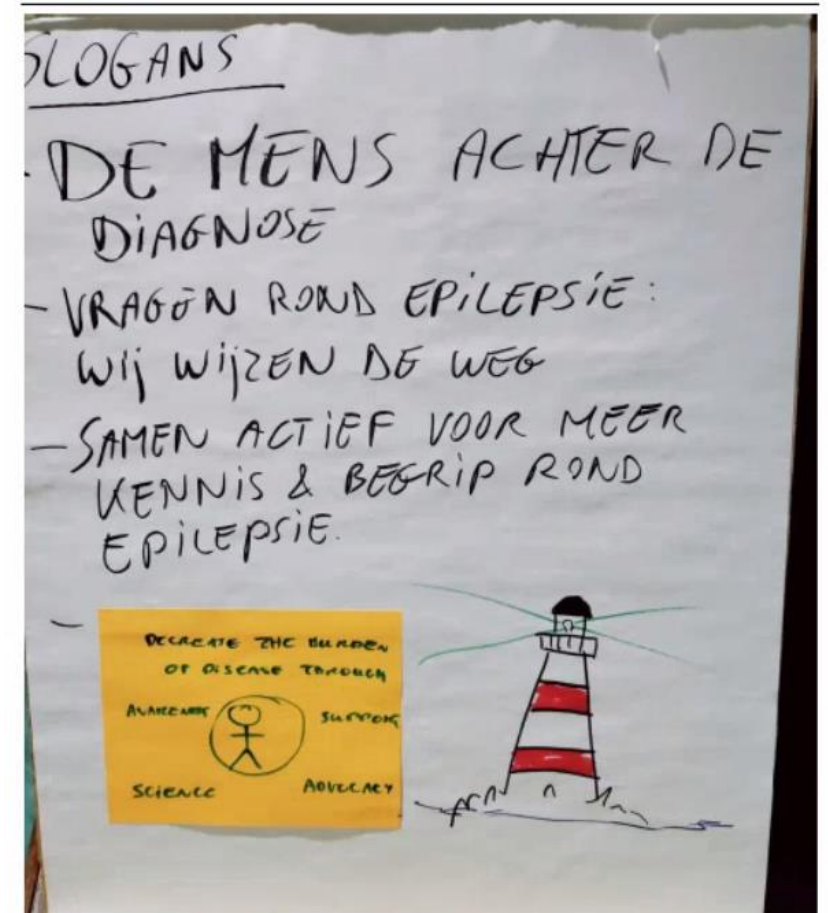 SLOGANS
- DE MENS ACHTER DE
DiAGNOSE
- VRAGEN ROND EPiLEPSiE:
Wij WijZEN DE WEG
- SAMEN ACTiEF VOOR MEER
KENNiS & BEGRiP ROND
EPiLEPSiE.
-
DECREATE THE BURDEN
OF DISEASE THROUGH
AWARENESS SUPPORT
SCiENCE ADVOCACY